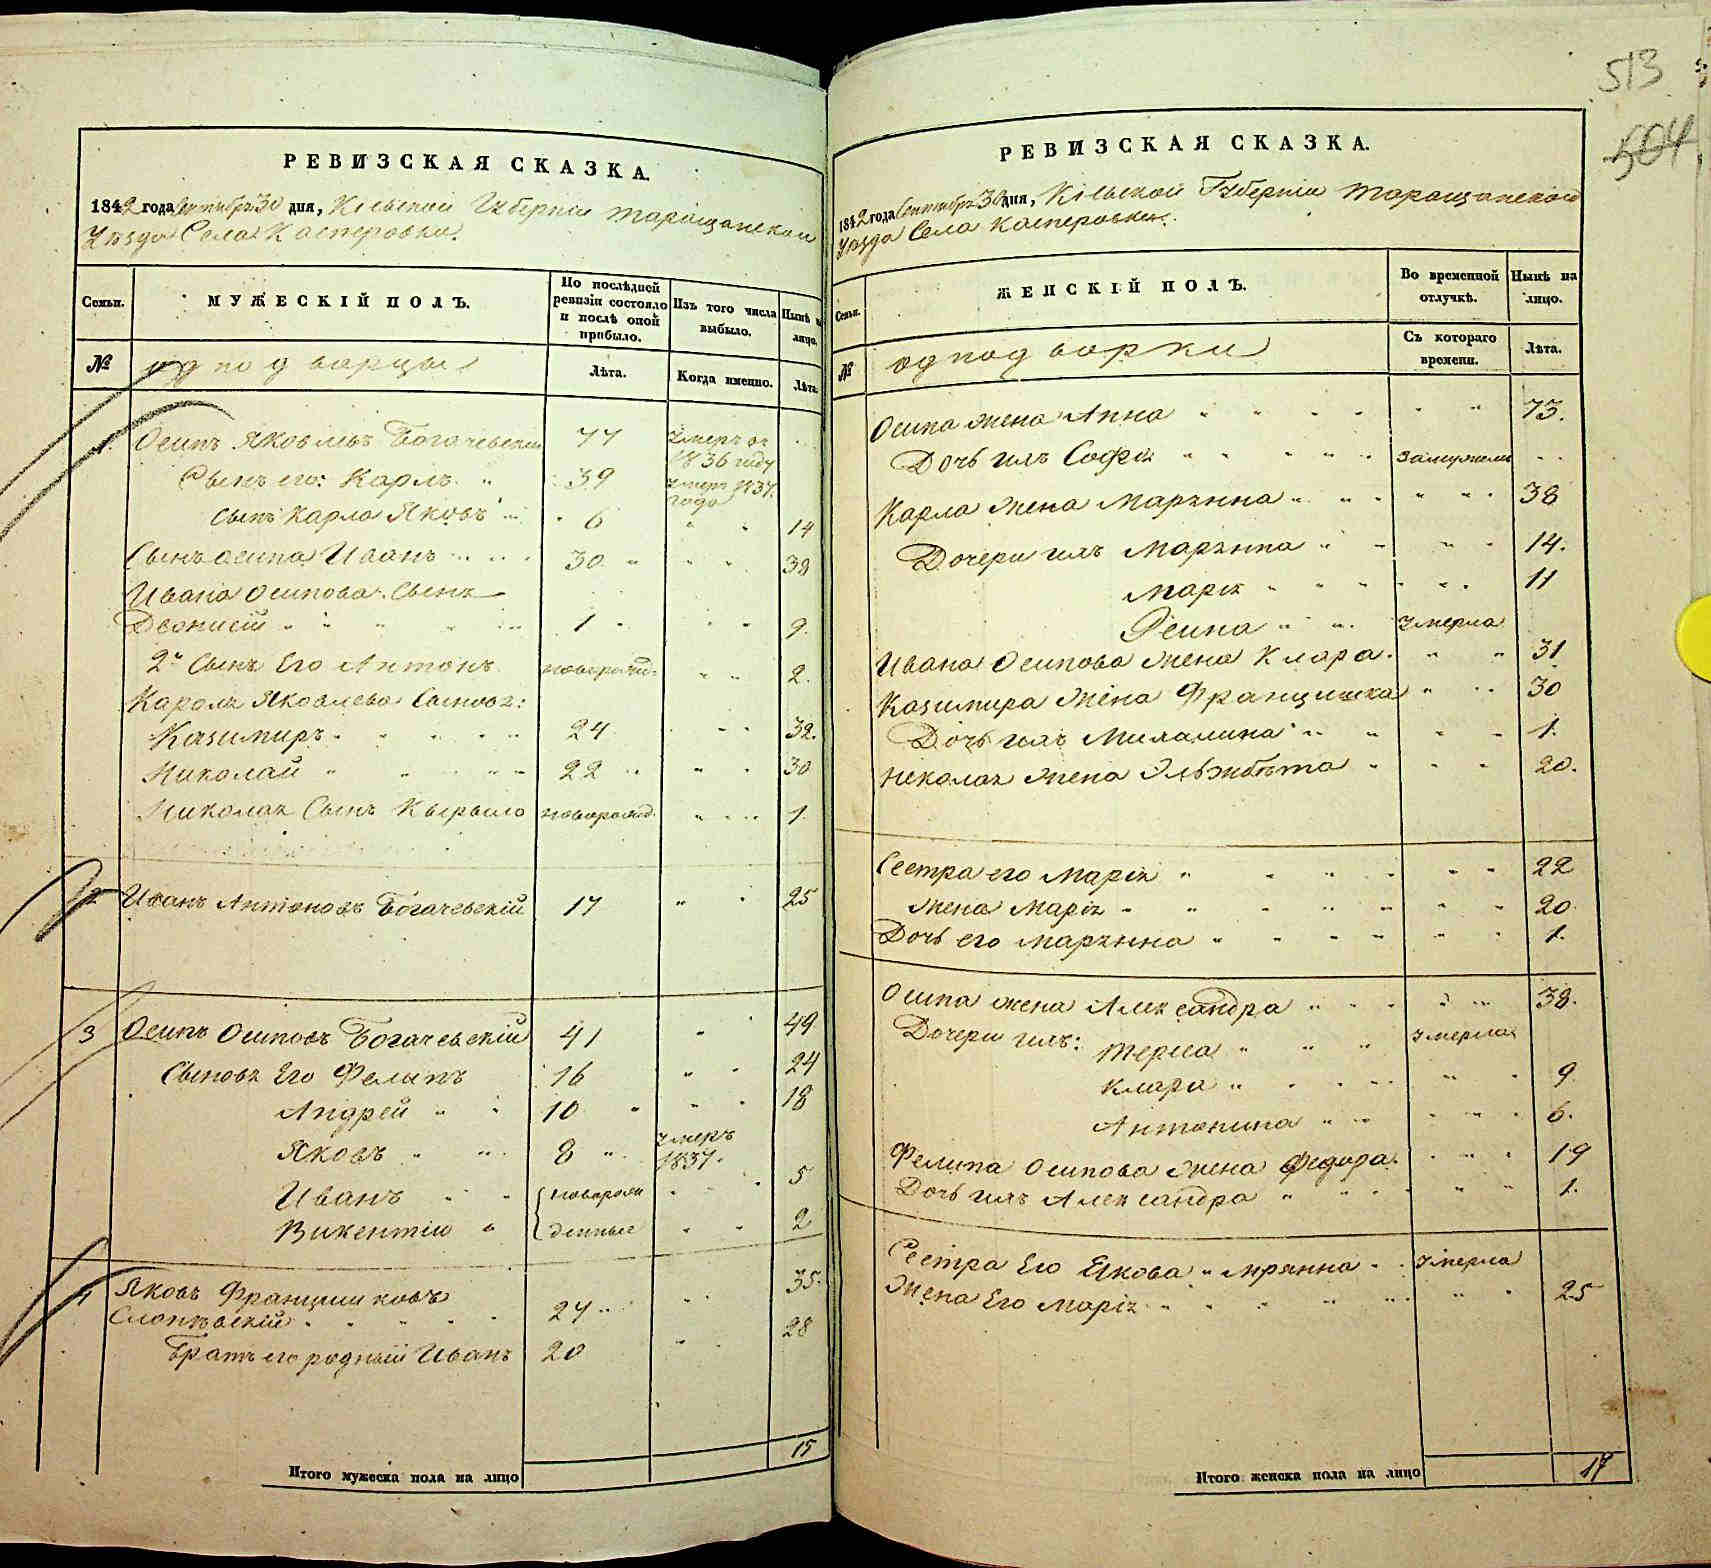 513
504
РЕВИЗСКАЯ СКАЗКА.
1842 года Сентября 30 дня, Кіевской Губерніи Таращанскаго
Уѣзда Села Касперовки.
Семьи.
МУЖЕСКІЙ ПОЛЪ.
По послѣдней ревизіи состояло и послѣ оной прибыло.
Изъ того числа выбыло.
Нынѣ на лицо.
№
однодворцы
Лѣта.
Когда именно.
Лѣта.
1. Осипъ Яковлевъ Богачевскій 77 Умеръ въ 1836 году
Сынъ его: Карлъ 39 умеръ 1837 года
Сынъ Карла Яковъ 6 14
Сынъ Осипа Иванъ 30 38
Ивана Осипова Сынъ
Деонисій 1 9.
2й Сынъ Его Антонъ новорожд. 2.
Кароля Яковлева Сыновья:
Казимиръ 24 32.
Николай 22 30
Николая Сынъ Кырыло новорожд. 1.
2 Иванъ Антоновъ Богачевскій 17 25
3 Осипъ Осиповъ Богачевскій 41 49
Сыновья Его Фелипъ 16 24
Андрей 10 18
Яковъ 8 умеръ 1837.
Иванъ новорож 5
Викентій денные 2
4 Яковъ Францишковъ
27 35.
Братъ его родный Иванъ 20 28
Итого мужеска пола на лицо 15
РЕВИЗСКАЯ СКАЗКА.
1842 года Сентября 30 дня, Кіевской Губерніи Таращанскаго
Уѣзда Села Касперовки.
Семьи.
ЖЕНСКІЙ ПОЛЪ.
Во временной отлучкѣ.
Нынѣ на лицо.
№
однодворки
Съ котораго времени.
Лѣта.
Осипа жена Анна 73.
Дочь ихъ Софія замужем
Карла жена Маріянна 38
Дочери ихъ Маріянна 14.
Марія 11
умерла
Ивана Осипова жена Клара 31
Казимира жена Францишка 30
Дочь ихъ 1.
Николая жена Эльжбѣта 20.
Сестра его Марія 22
Жена Марія 20
Дочь его Маріянна 1.
Осипа жена Александра 38.
Дочери ихъ: Тереса умерла
Клара 9
Антонина 6.
Фелипа Осипова жена Федора 19
Дочь ихъ Александра 1.
Сестра Его Якова Мрянна умерла
Жена Его Марія 25
Итого женска пола на лицо 17